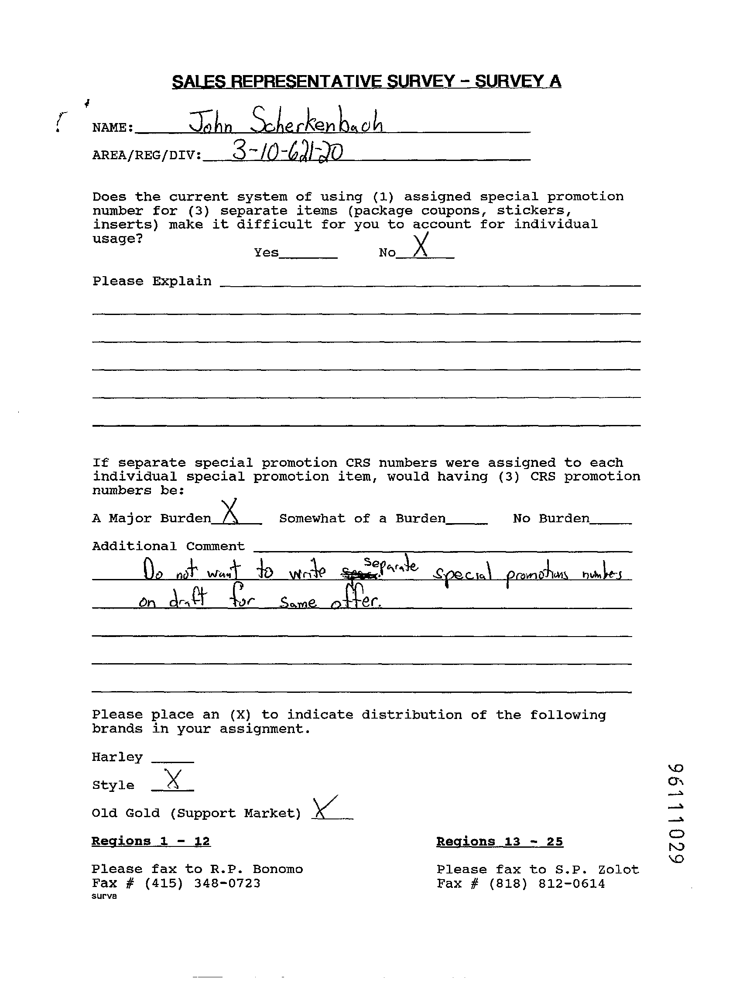 SALES REPRESENTATIVE SURVEY - SURVEY A
NAME: John Scherkenbach
AREA/REG/DIV: 3-10-621-20
Does the current system of using (1) assigned special promotion
number for (3) separate items (package coupons, stickers,
inserts) make it difficult for you to account for individual
usage?
Yes______ No X
Please Explain
If separate special promotion CRS numbers were assigned to each
individual special promotion item, would having (3) CRS promotion
numbers be:
A Major Burden X Somewhat of a Burden_____ No Burden_____
Additional Comment
Do not want to write separate special promotions numbers
on draft for same offer.
Please place an (X) to indicate distribution of the following
brands in your assignment.
Harley _____
Style X
Old Gold (Support Market) X
Regions 1 - 12 Regions 13 - 25
Please fax to R.P. Bonomo Please fax to S.P. Zolot
Fax # (415) 348-0723 Fax # (818) 812-0614
surva
96111029